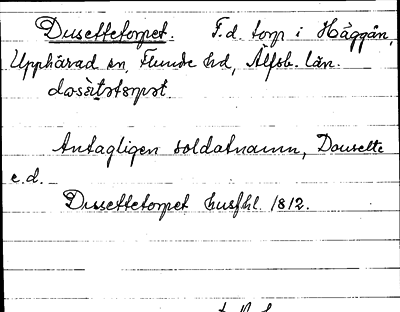 Dusettetorpet. F.d. torp i Häggån,
Upphärad sn, Flundre hd, Älfsb. län.
dosètstsrpst.
Antagligen soldatnamn, Dousette
e.d.
Dussettetorpet husfhl. 1812.